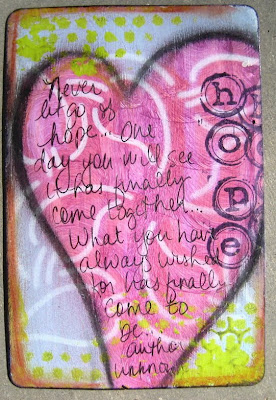 Never
let go of
hope... One
day you will see
it has finally
come together...
What you have
always wished
for has finally
come to
be...
author
unknown
hope